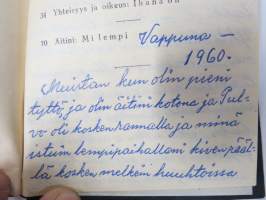 34 Yhteisyys ja oikeus: Ihana on
70 Äitini: Mi lempi
Vappuna -
1960.
Muistan kun olin pieni
tyttö, ja olin äitini kotona ja Pul-
vo oli kosken rannalla ja minä
istuin lempipaikallani kiven pääl-
lä kosken melkein huuhtoissa